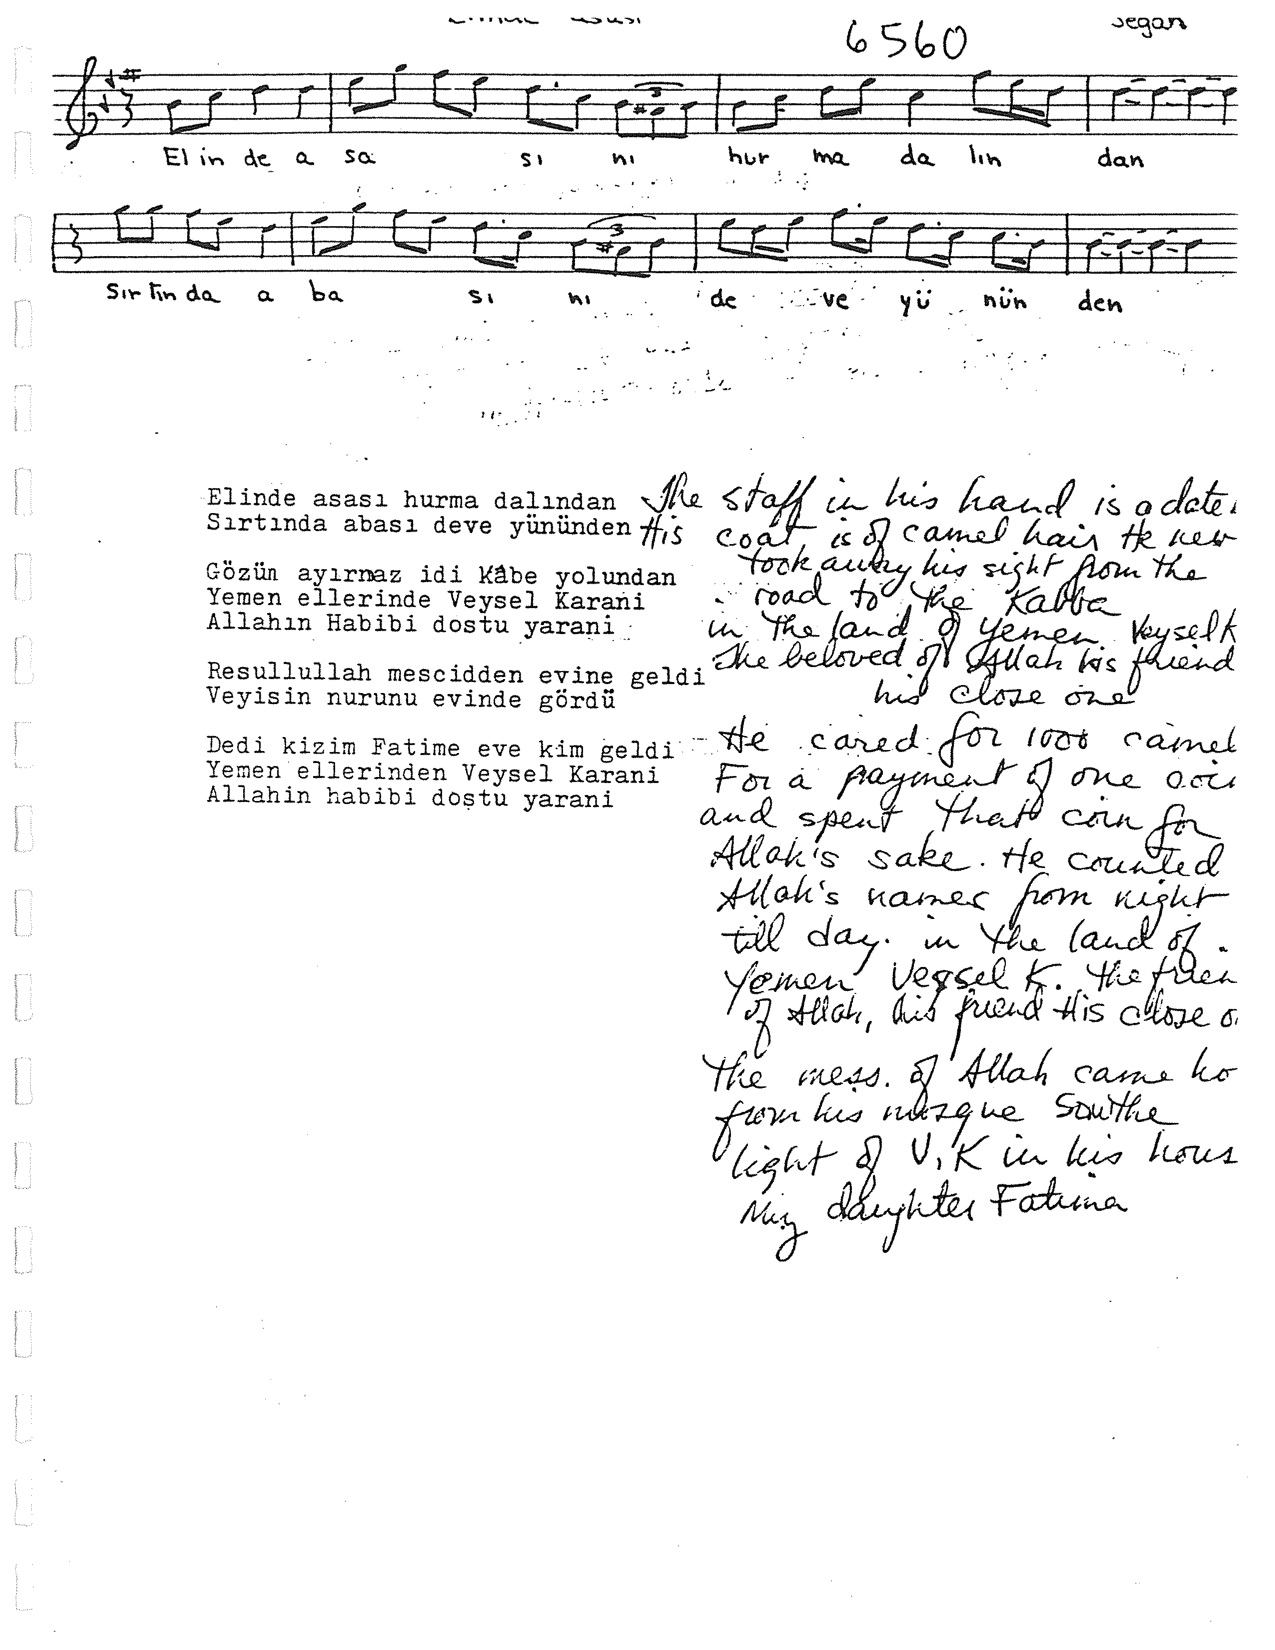 segâh
6560
El in de a sa sı nı hur ma da lın dan
Sır tın da a ba sı nı de ve yü nün den
Elinde asası hurma dalından
Sırtında abası deve yününden
Gözün ayırmaz idi Kâbe yolundan
Yemen ellerinde Veysel Karani
Allahın Habibi dostu yarani
Resullullah mescidden evine geldi
Veyisin nurunu evinde gördü
Dedi kizim Fatime eve kim geldi
Yemen ellerinden Veysel Karani
Allahin habibi dostu yarani
The staff in his hand is a date
His coat is of camel hair He nev
took away his sight from the
road to the Kabba
in the land of Yemen Veysel K
The beloved of Allah his friend
his close one
He cared for 1000 camel
For a payment of one coi
and spent that coin for
Allah's sake. He counted
Allah's names from night
till day. in the land of
Yemen Veysel K. The frien
of Allah, his friend His close o
The mess. of Allah came ho
from his mosque Saw the
light of V.K in his hous
My daughter Fatima